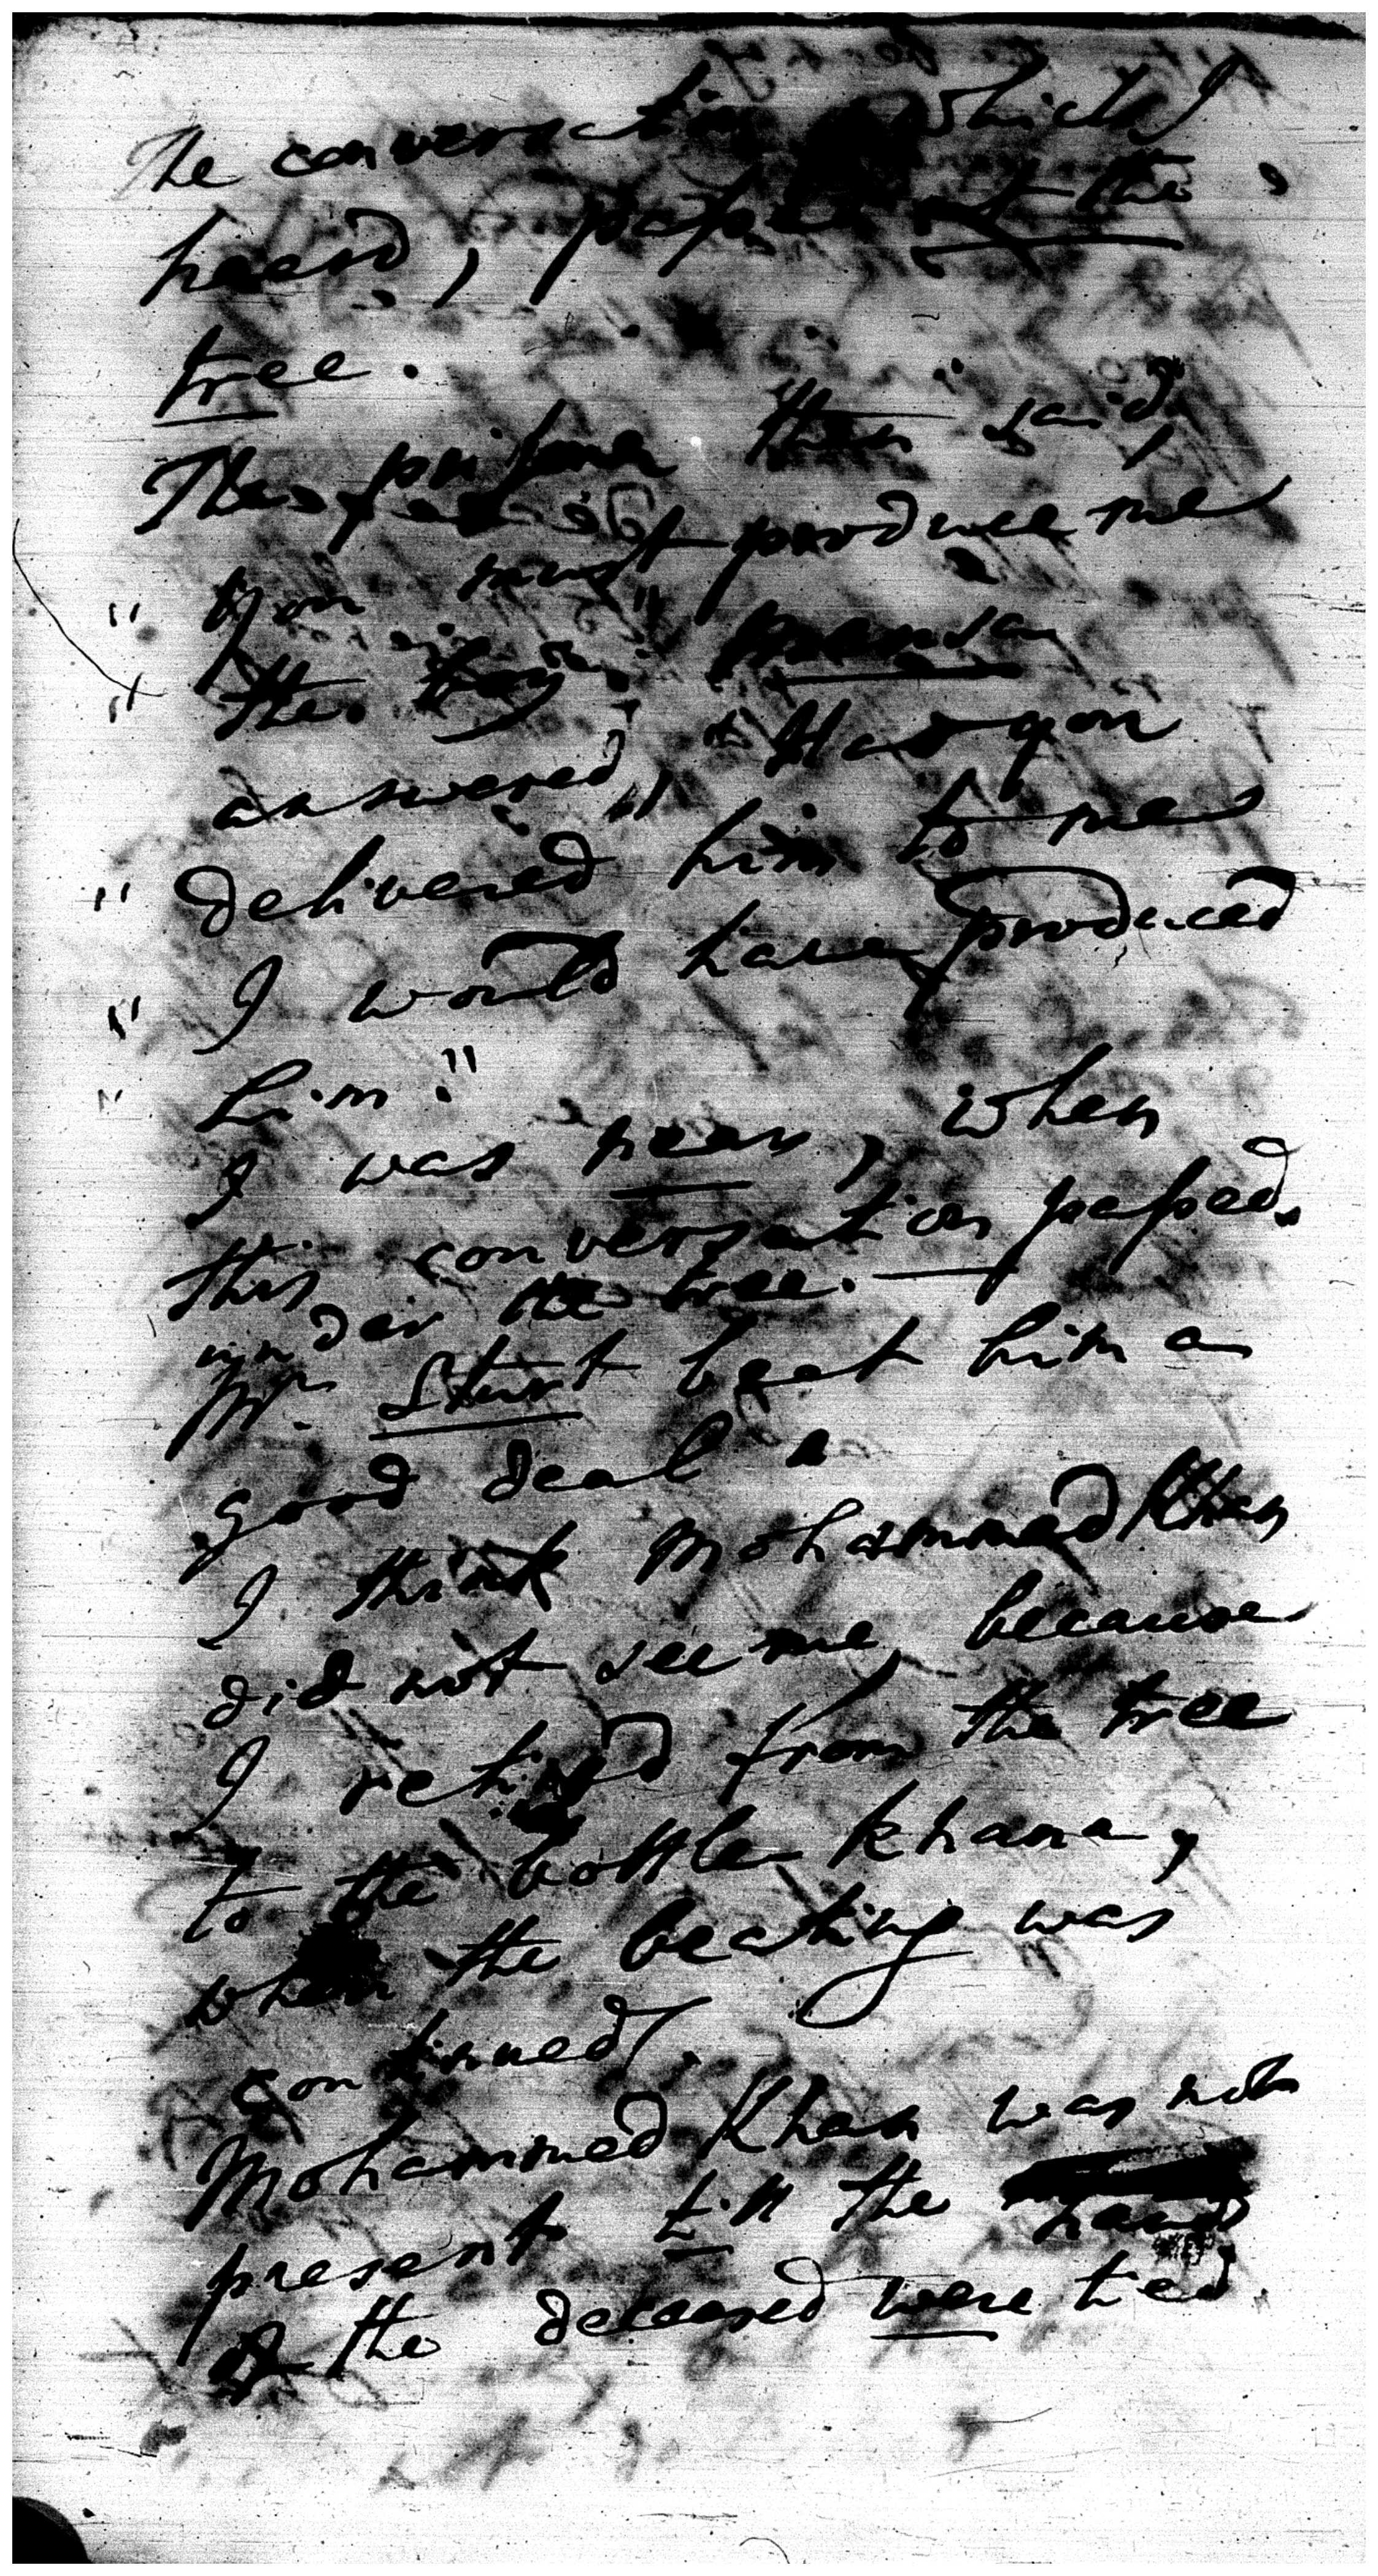 The conversation which I
heard, passed at the
tree.
The prisoner then said,
" You must produce me
" the boy".
answered, "Had you
" delivered him to me
" I would have produced
" him."
I was near, when
this conversation passed
under the tree. —
Mr. Sturt beat him a
good deal
I think Mohammed Khan
did not see me, because
I retired from the tree
to the bottle khana,
when the beating was
continued.
Mohammed Khan was not
present till the hands
of the deceased were tied.